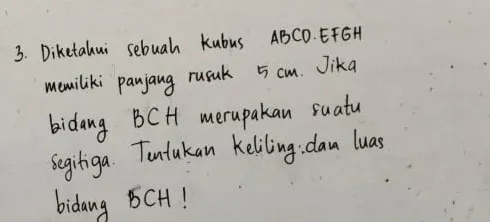 3. Diketahui sebuah kubus ABCD.EFGH
memiliki panjang rusuk 5 cm. Jika
bidang BCH merupakan suatu
segitiga. Tentukan keliling dan luas
bidang BCH !